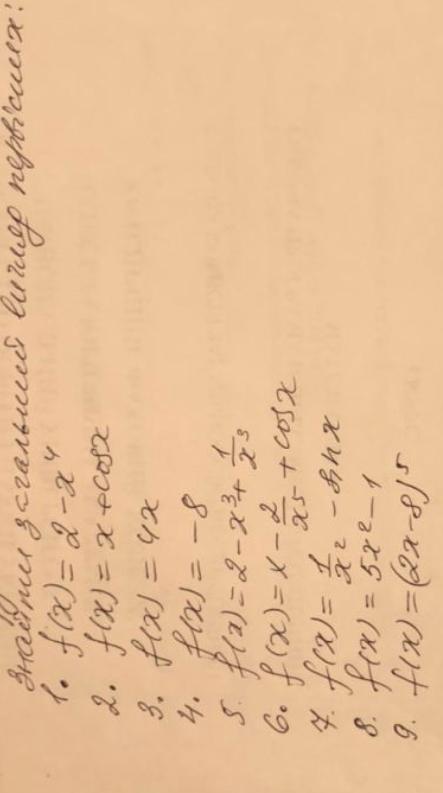 Знайти загальний вигляд первісних:
1. f(x) = 2 - x⁴
2. f(x) = x + cosx
3. f(x) = 4x
4. f(x) = -8
5. f(x) = 2 - x³ + 1/x³
6. f(x) = x - 2/x⁵ + cosx
7. f(x) = 1/x² - sinx
8. f(x) = 5x² - 1
9. f(x) = (2x - 8)⁵